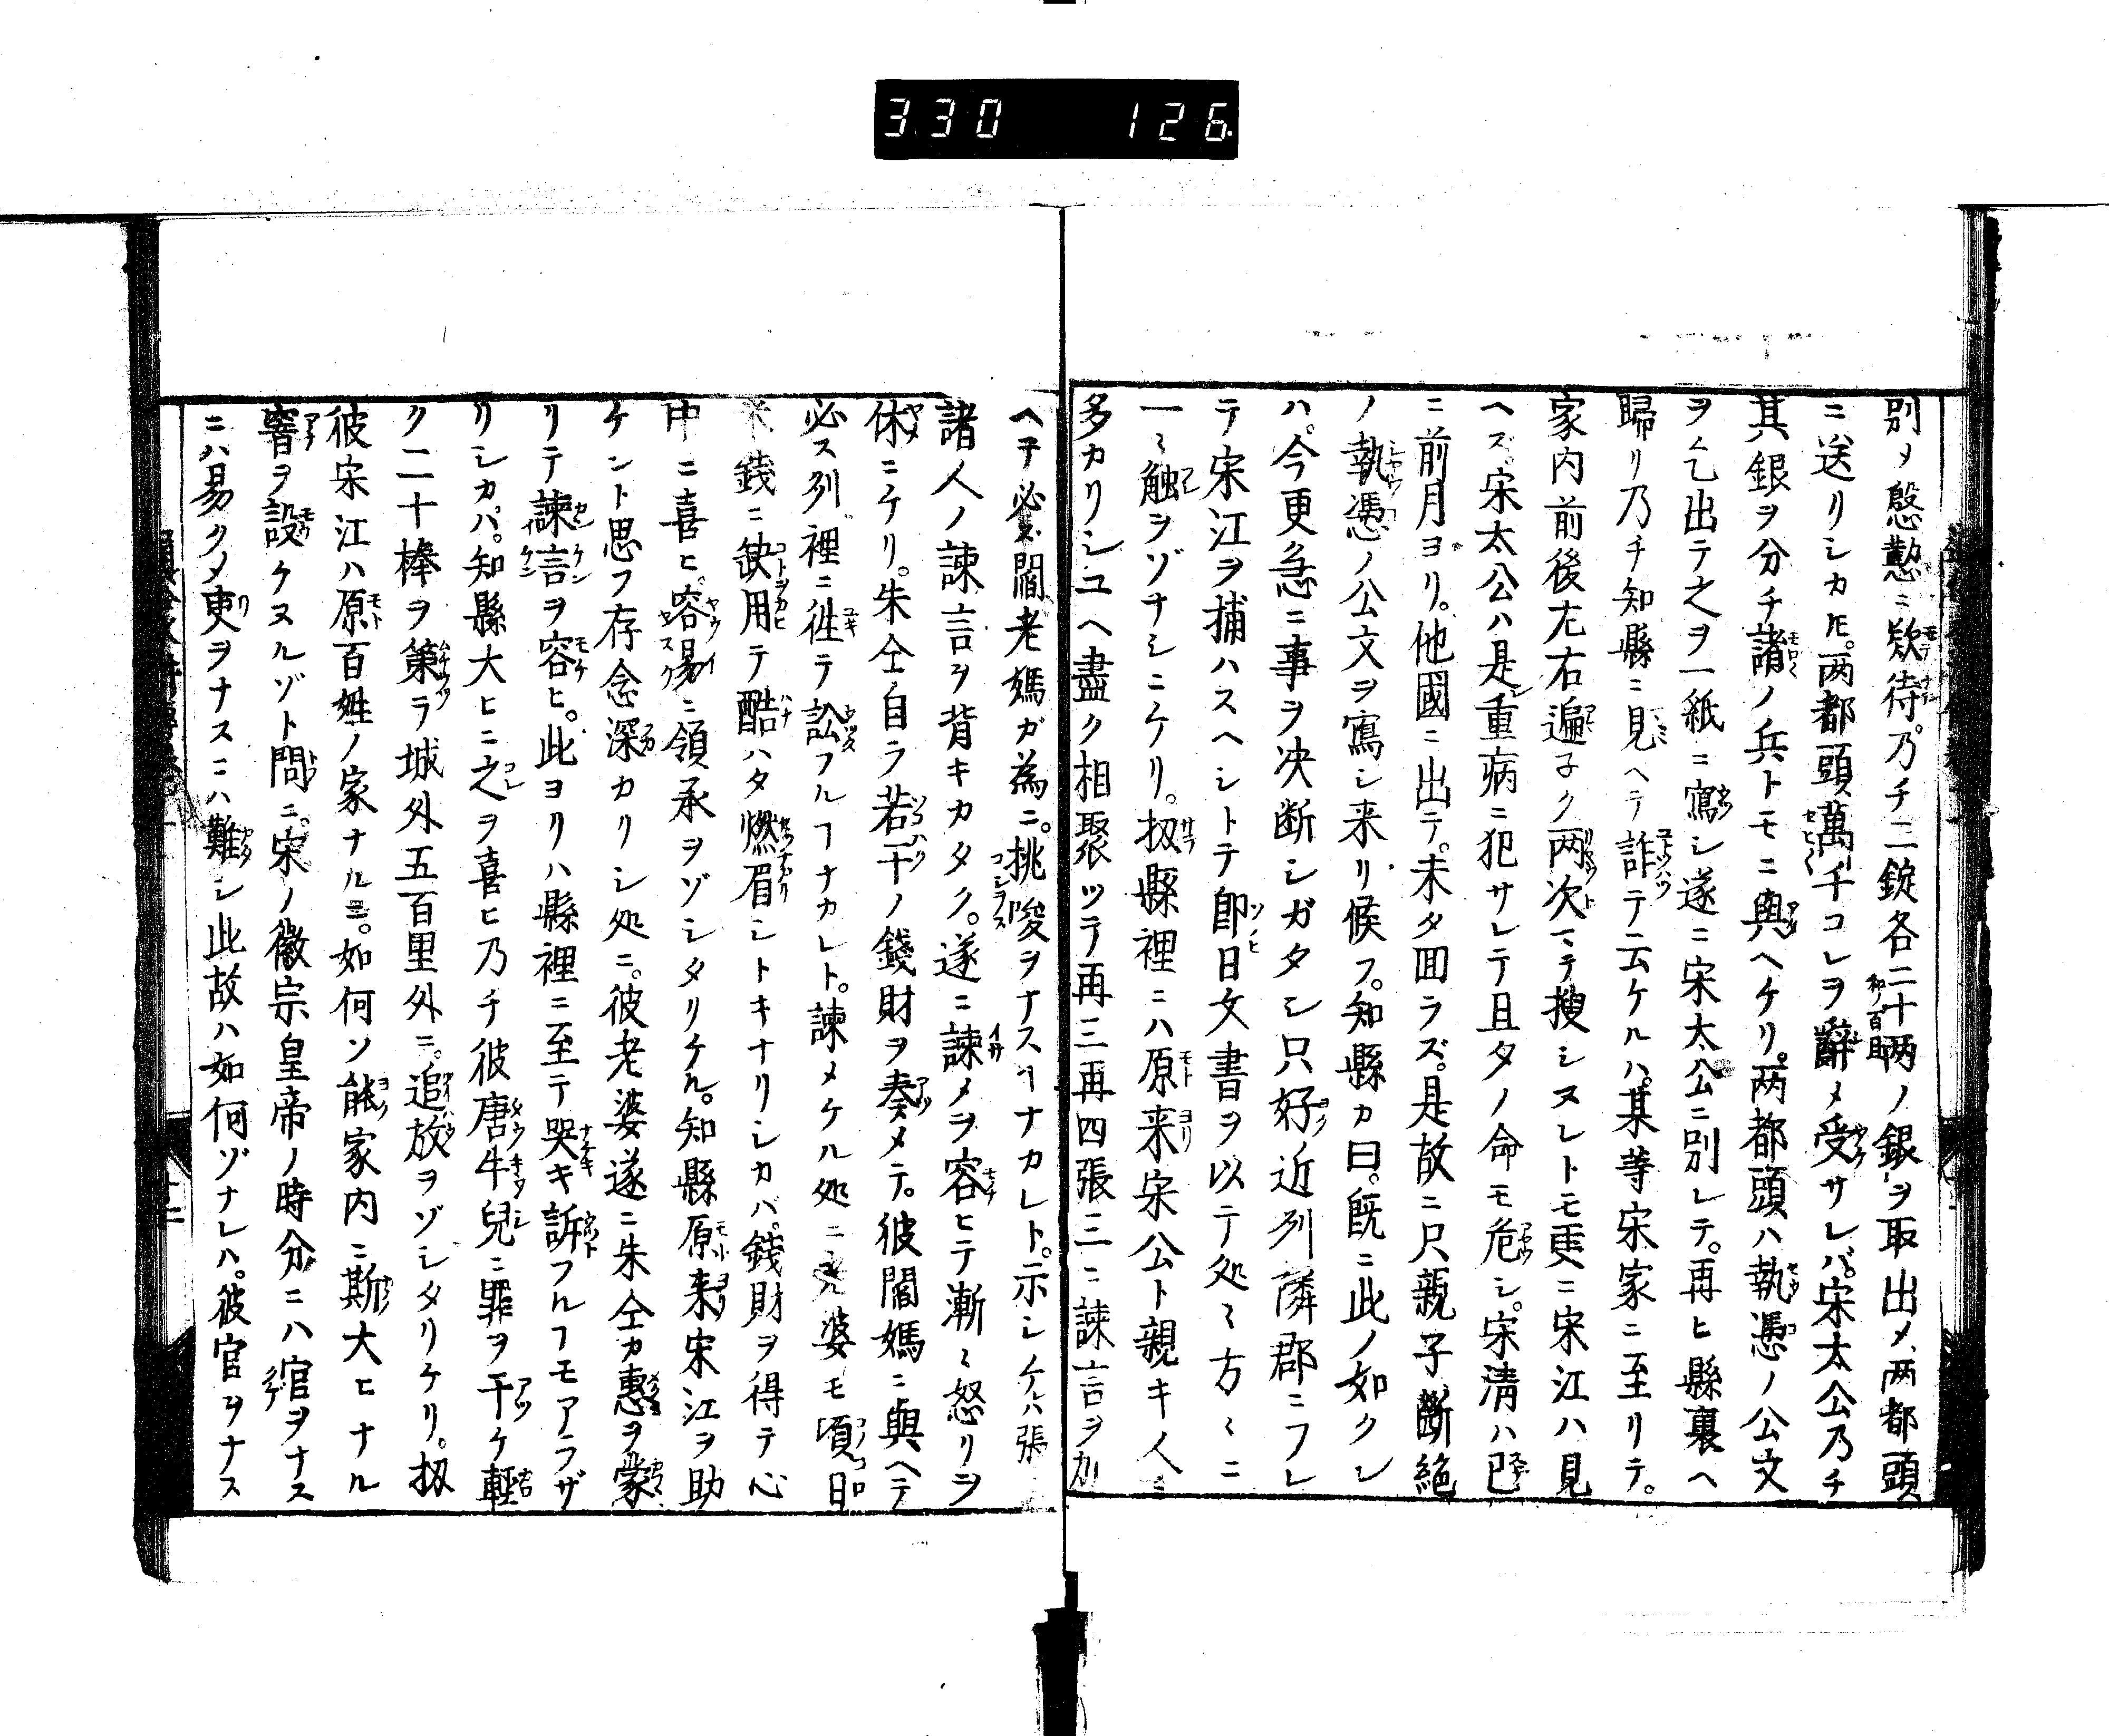 330 126
別〆慇懃ニ欵待。乃チ二錠各二十两ノ銀ヲ取出〆、两都頭
ニ送リシカ𪜈。两都頭萬千コレヲ辭〆受サレバ。宋太公乃チ
其銀ヲ分チ諸ノ兵トモニ與ヘケリ。两都頭ハ執憑ノ公文
ヲ乞出テ之ヲ一紙ニ寫シ遂ニ宋太公ニ別レテ。再ヒ縣裏ヘ
歸リ乃チ知縣ニ見ヘテ詐テ云ケルハ。某等宋家ニ至リテ。
家内前後左右遍子ク两次ミテ搜シヌレトモ更ニ宋江ハ見
ヘズ。宋太公ハ是重病ニ犯サレテ且タノ命モ危シ。宋清ハ已
ニ前月ヨリ。他國ニ出テ。未タ回ラズ。是故ニ只親子斷絶
ノ執憑ノ公文ヲ寫シ来リ候フ。知縣カ曰。既ニ此ノ如クシ
ハ。今更急ニ事ヲ决断シガタシ只好近列隣郡ニフレ
テ宋江ヲ捕ハスヘシトテ即日文書ヲ以テ処〻方〻ニ
一〻触ヲゾナシニケリ。扨縣裡ニハ原来宋公ト親キ人〻
多カリシユヘ盡ク相聚ツテ再三再四張三ニ諫言ヲ加
ヘテ必ズ閻老媽ガ為ニ。挑唆ヲナスヿナカレト。示シケレハ張
諸人ノ諫言ヲ背キカタク。遂ニ諫メヲ容ヒテ漸〻怒リヲ
休ニケリ。朱仝自ラ若干ノ錢財ヲ奏メテ。彼閻媽ニ與ヘテ
必ス列裡ニ徃テ訟フルヿナカレト。諫メケル処ニ 婆モ頃日
錢ニ缺用テ酷ハタ燃眉シトキナリシカバ。錢財ヲ得テ心
中ニ喜ヒ。容昜ニ領承ヲゾシタリケル。知縣原来宋江ヲ助
ケント思フ存念深カリシ処ニ。彼老婆遂ニ朱仝カ惠ヲ蒙
リテ諫言ヲ容ヒ。此ヨリハ縣裡ニ至テ哭キ訴フルヿモアラザ
リシカバ。知縣大ヒニ之ヲ喜ヒ乃チ彼唐牛兒ニ罪ヲ干ケ輕
ク二十棒ヲ策ラ城外五百里外ニ。追放ヲゾシタリケリ。扨
彼宋江ハ原百姓ノ家ナルニ。如何ソ能家内ニ斯大ヒナル
窨ヲ設ケヌルゾト問ニ。宋ノ徽宗皇帝ノ時分ニハ官ヲナス
ニハ易ク〆吏ヲナスニハ難シ此故ハ如何ゾナレハ。彼官ヲナス